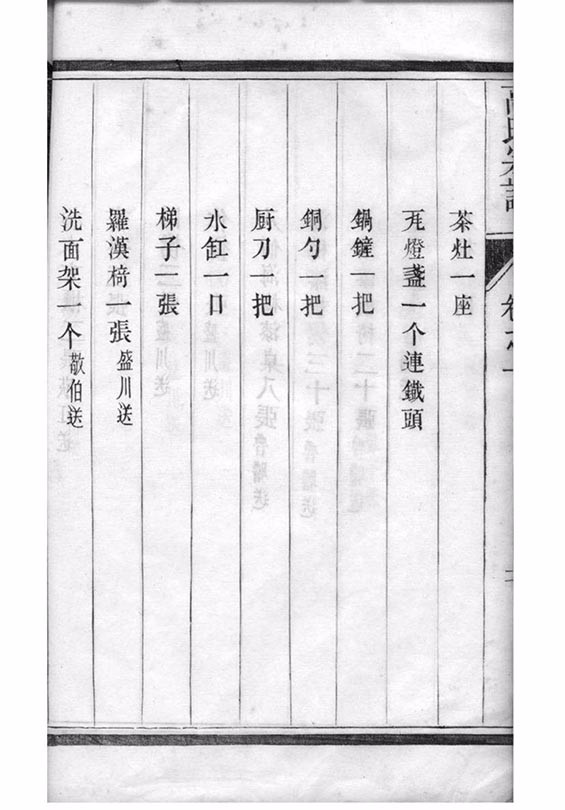 茶灶一座
瓦燈盞一个連鐵頭
鍋鏟一把
銅勺一把
厨刀一把
水缸一口
梯子一張
羅漢椅一張盛川送
洗面架一个敬伯送